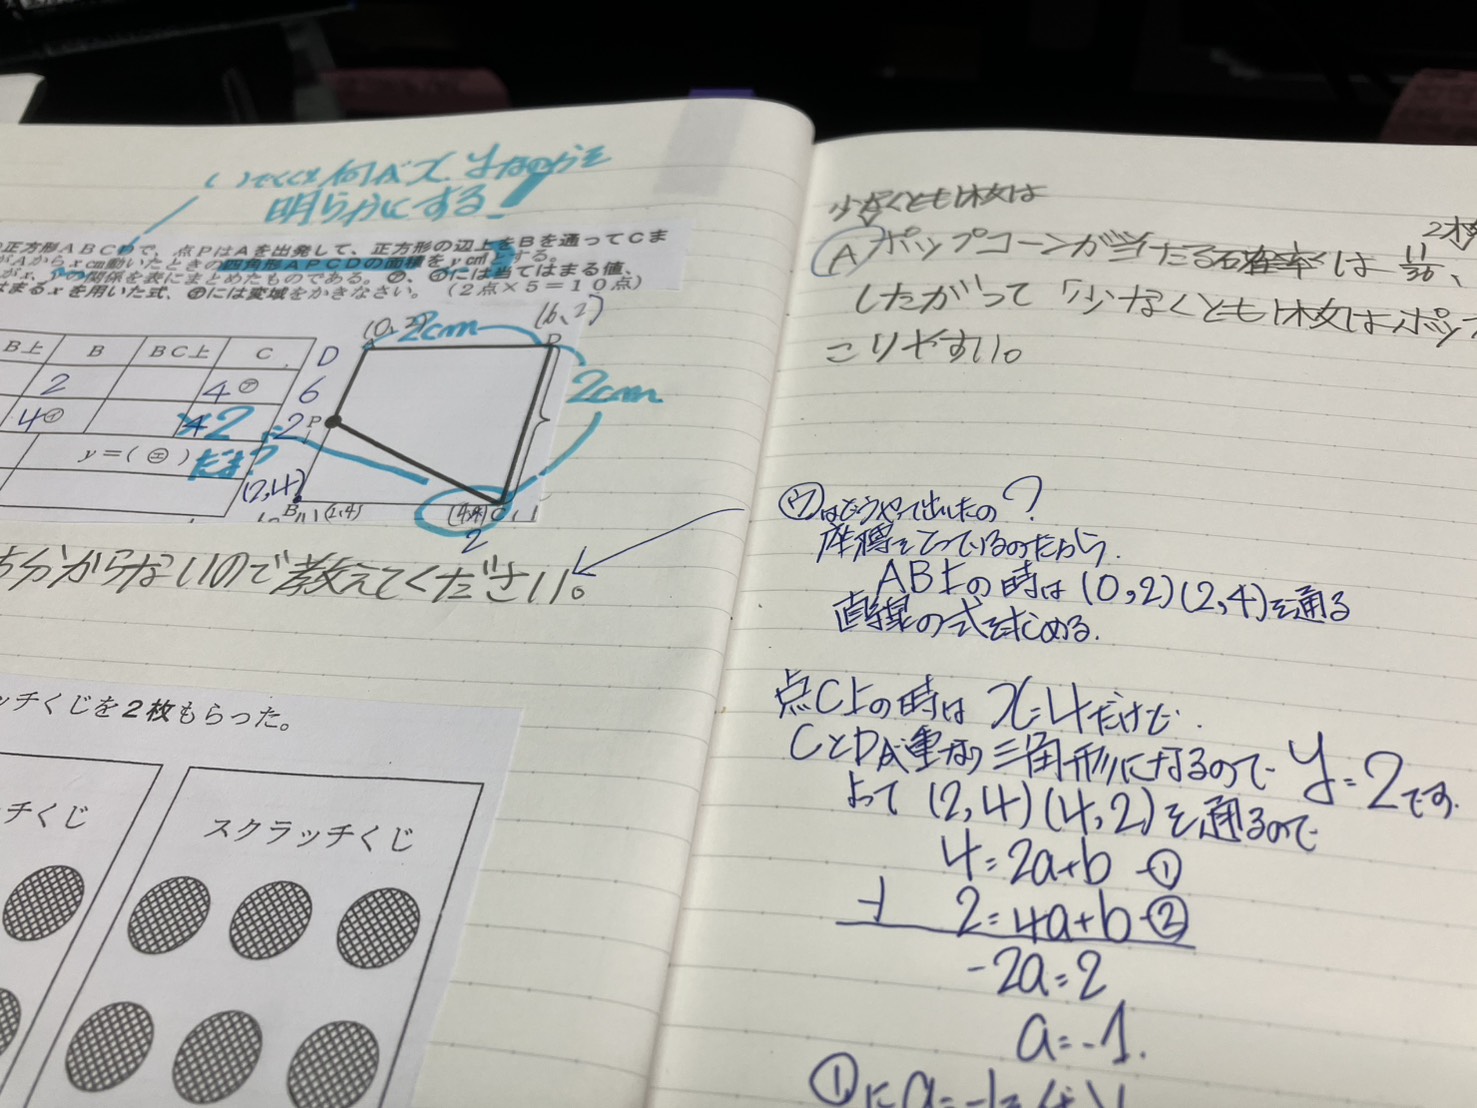 明らかにする!
正方形ABCDで、点PはAを出発して、正方形の辺上をBを通ってCま
がAからxcm動いたときの四角形APCDの面積をycm²とする。
がx、yの関係を表にまとめたものである。⑦、④には当てはまる値、
はまるxを用いた式、㋔には変域をかきなさい。(2点×5=10点)
B上 B BC上 C D
2 4㋐ 6
4㋑ 2 2
y=(㋓)
(0,2) 2cm (6,2)
2cm
P
(2,4)
B (2,4) (4,4) C
2
分からないので教えてください。
ッチくじを2枚もらった。
チくじ
スクラッチくじ
少なくとも1枚は
Ⓐポップコーンが当たる確率は 11/36、
したがって「少なくとも1枚はポップ
こりやすい。
㋒はどうやって出したの?
座標をとっているのだから、
AB上の時は(0,2)(2,4)を通る
直線の式を求める。
点C上の時は x=4だけど、
CとPが重なり三角形になるので y=2です。
よって (2,4)(4,2)を通るので
4=2a+b -①
-) 2=4a+b-②
-2a=2
a=-1.
①に a=-1を